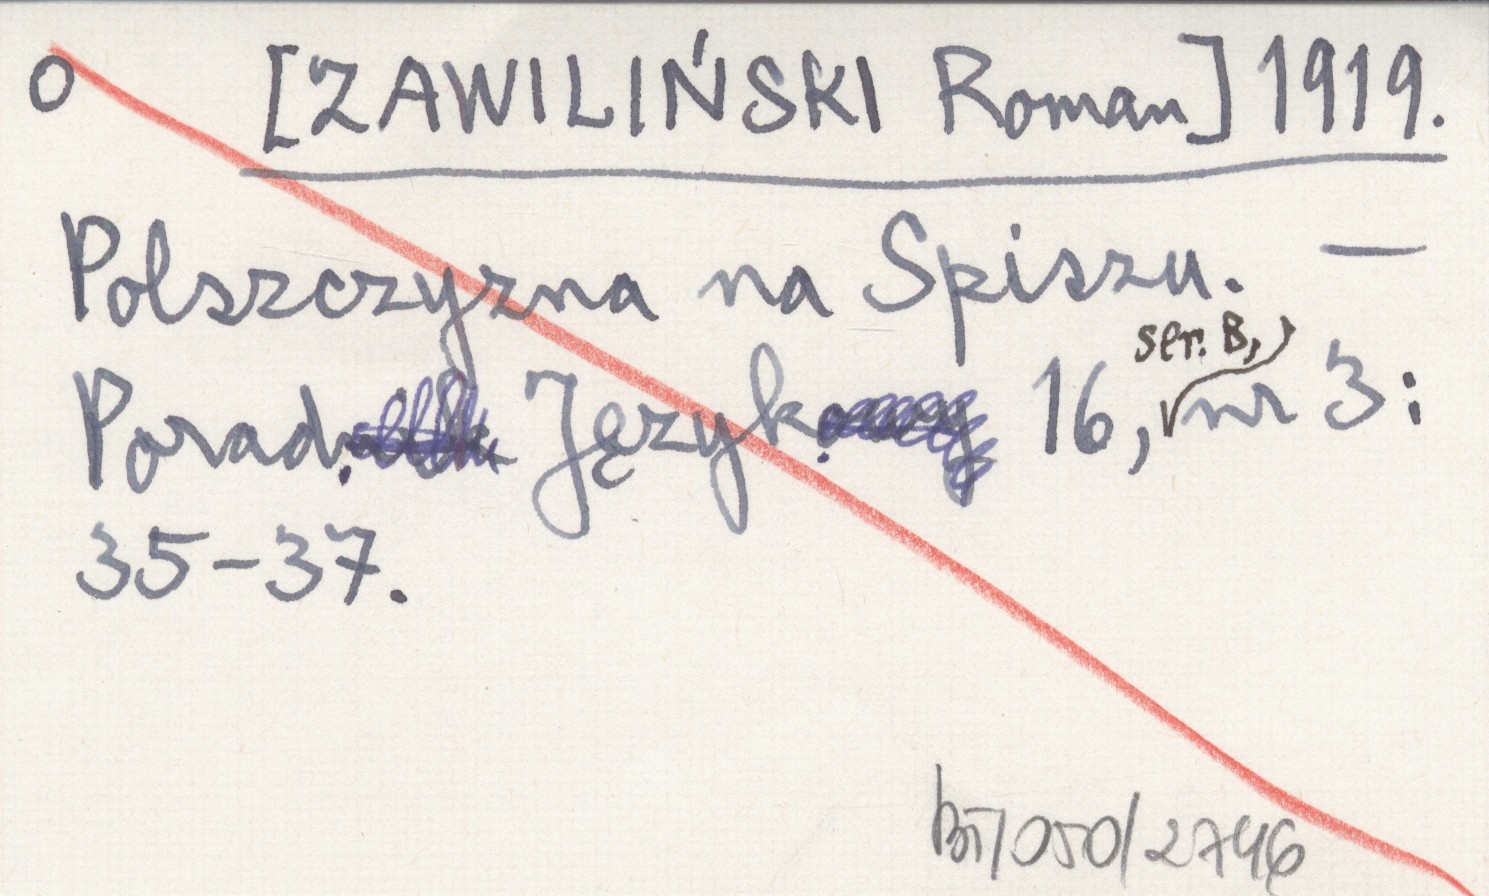 O [ZAWILIŃSKI Roman] 1919.
Polszczyzna na Spiszu. —
ser. B,
Porad. Język. 16, nr 3:
35-37.
BJ/050/2746